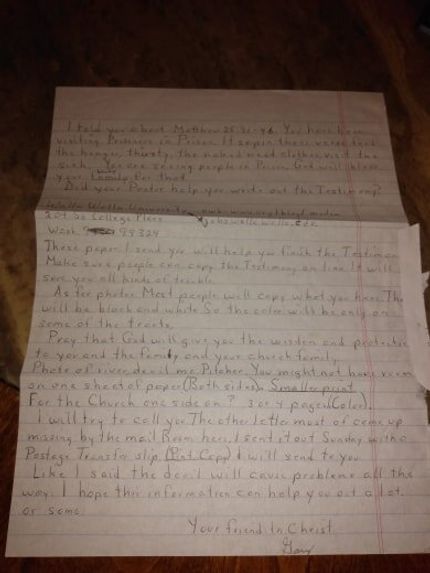 I told you about Matthew 25:31-46. You have been
visiting Prisoners in Prison. It says in these verses feed
the hungry, thirsty, the naked need clothes, visit the
sick. You are seeing people in Prison. God will bless
your Family for that.
Did your Pastor help you write out the Testimony?
Walla Walla University
204 So College Place
Wash 99324
These paper I send you will help you finish the Testimony
Make sure people can copy the Testimony on line. It will
save you all kinds of trouble.
As for photos Most people will copy what you have. The
will be black and white so the color will be only on
some of the tracts.
Pray that God will give you the wisdom and protection
to you and the family and your church family.
Photo of river, devil, me, Pitcher. You might not have room
on one sheet of paper (Both sides). Smaller print
For the Church one side on? 3 or 4 pages (Color).
I will try to call you. The other letter must of come up
missing by the mail Room here. I sent it out Sunday with a
Postage Transfer slip. (Pink Copy) I will send to you
Like I said the devil will cause problems all the
way. I hope this information can help you out a lot
or some.
Your friend In Christ
Gary